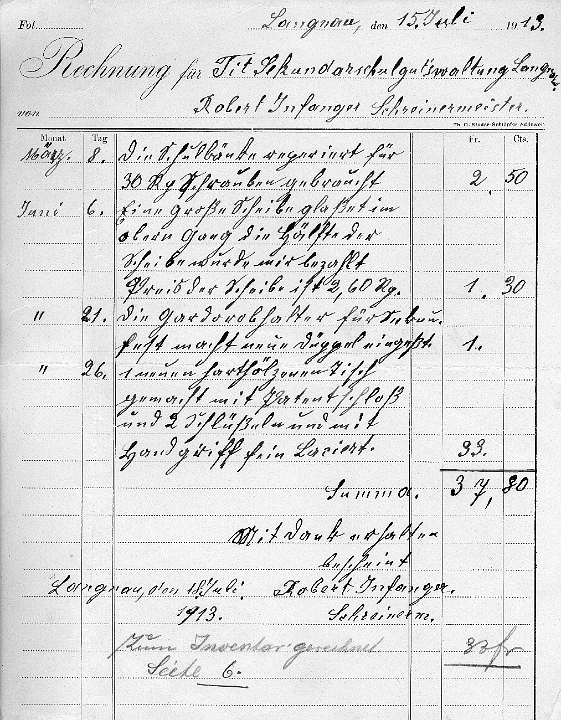 Fol.
Langnau, den 15. Juli 1913.
Rechnung für Tit Sekundarschulgutsvwaltung Langnau.
von Robert Infanger Schreinermeister.
Monat Tag Fr. Cts.
März. 8. Die Schulbänke reperiert für
30 Rp Schrauben gebraucht 2, 50
Juni 6. Eine große Scheibe glaßet im
obern Gang die Hälfte der
Scheibe wurde mir bezahlt
Preis der Scheibe ist 2,60 Rp. 1. 30
" 21. Die Gardorobhalter für
fest macht neue Düppel 1.
" 26. 1 neuen harthölzenen Tisch
gemacht mit Patentschloß
und 2 Schlüßeln und mit
Handgriff fein Laciert. 33.
Summa. 37,80
Mit Dank erhalten
bescheint
Langnau, den 18 Juli. Robert Infanger.
1913. Schreinerm.
Zum Inventar gerechnet 33 fr
Seite 6.